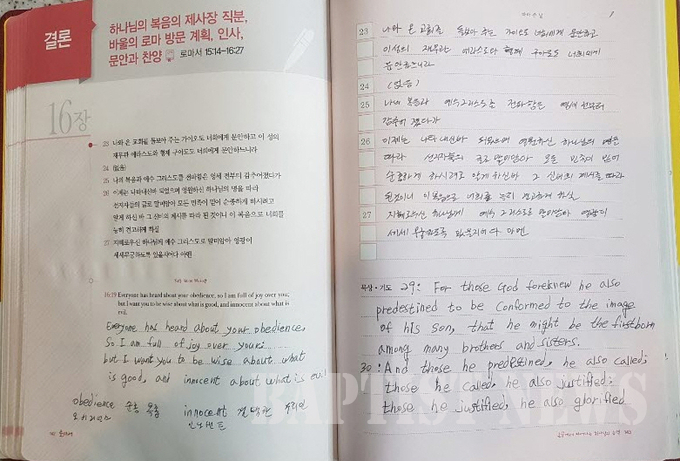 결론
하나님의 복음의 제사장 직분,
바울의 로마 방문 계획, 인사,
문안과 찬양 로마서 15:14~16:27
16장
23 나와 온 교회를 돌보아 주는 가이오도 너희에게 문안하고 이 성의
재무관 에라스도와 형제 구아도도 너희에게 문안하느니라
24 (없음)
25 나의 복음과 예수 그리스도를 전파함은 영세 전부터 감추어졌다가
26 이제는 나타내신바 되었으며 영원하신 하나님의 명을 따라
선지자들의 글로 말미암아 모든 민족이 믿어 순종하게 하시려고
알게 하신 바 그 신비의 계시를 따라 된 것이니 이 복음으로 너희를
능히 견고하게 하실
27 지혜로우신 하나님께 예수 그리스도로 말미암아 영광이
세세무궁하도록 있을지어다 아멘
16:19 Everyone has heard about your obedience, so I am full of joy over you;
but I want you to be wise about what is good, and innocent about what is
evil.
Everyone has heard about your obedience,
So I am full of joy over your:
but I want you to be wise about what
is good, and innocent about what is evil
obedience 순종 복종 innocent 결백한
오비디언스 이노센트
23 나와 온 교회를 돌보아 주는 가이오도 너희에게 문안하고
이 성의 재무관 에라스도와 형제 구아도도 너희에게
문안하느니라
24 (없음)
25 나의 복음과 예수 그리스도를 전파함은 영세 전부터
감추어졌다가
26 이제는 나타내신바 되었으며 영원하신 하나님의 명을
따라 선지자들의 글로 말미암아 모든 민족이 믿어
순종하게 하시려고 알게 하신바 그 신비의 계시를 따라
된것이니 이 복음으로 너희를 능히 견고하게 하실
27 지혜로우신 하나님께 예수 그리스도로 말미암아 영광이
세세 무궁하도록 있을지어다 아멘
묵상·기도 29: For those God foreknew he also
predestined to be conformed to the image
of his son, that he might be the firstborn
among many brothers and sisters.
30: And those he predestined, he also called;
those he called, he also justified;
those he justified, he also glorified
BAPTIST NEWS